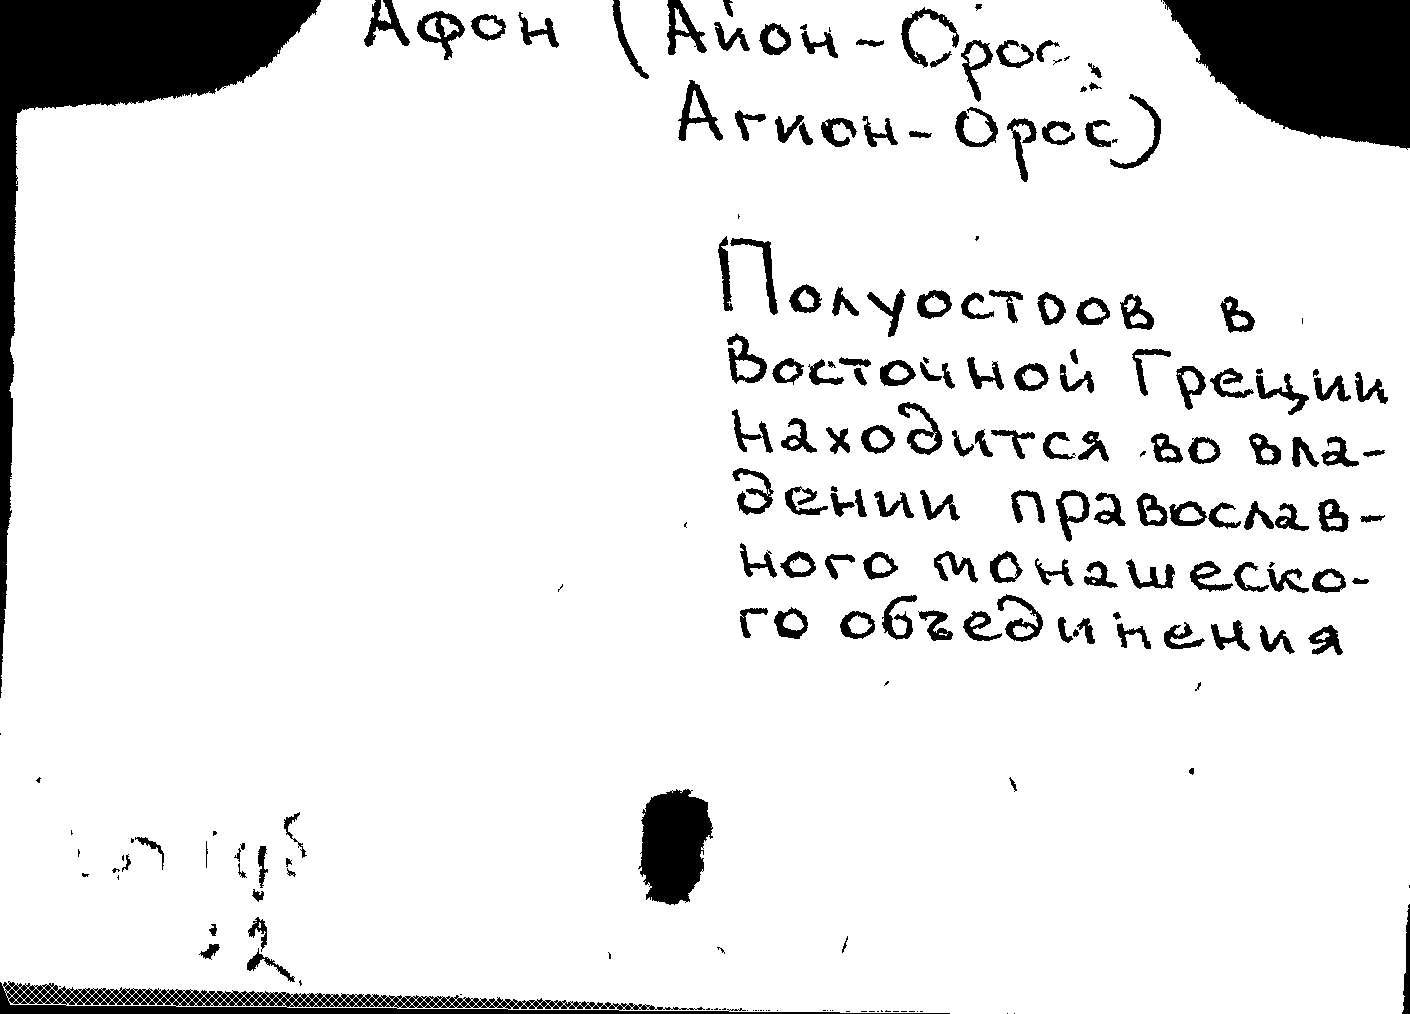 Афон (Айон-Орос,
Агион-Орос)
Полуостров в
Восточной Греции
находится во вла-
дении православ-
ного монашеско-
го объединения